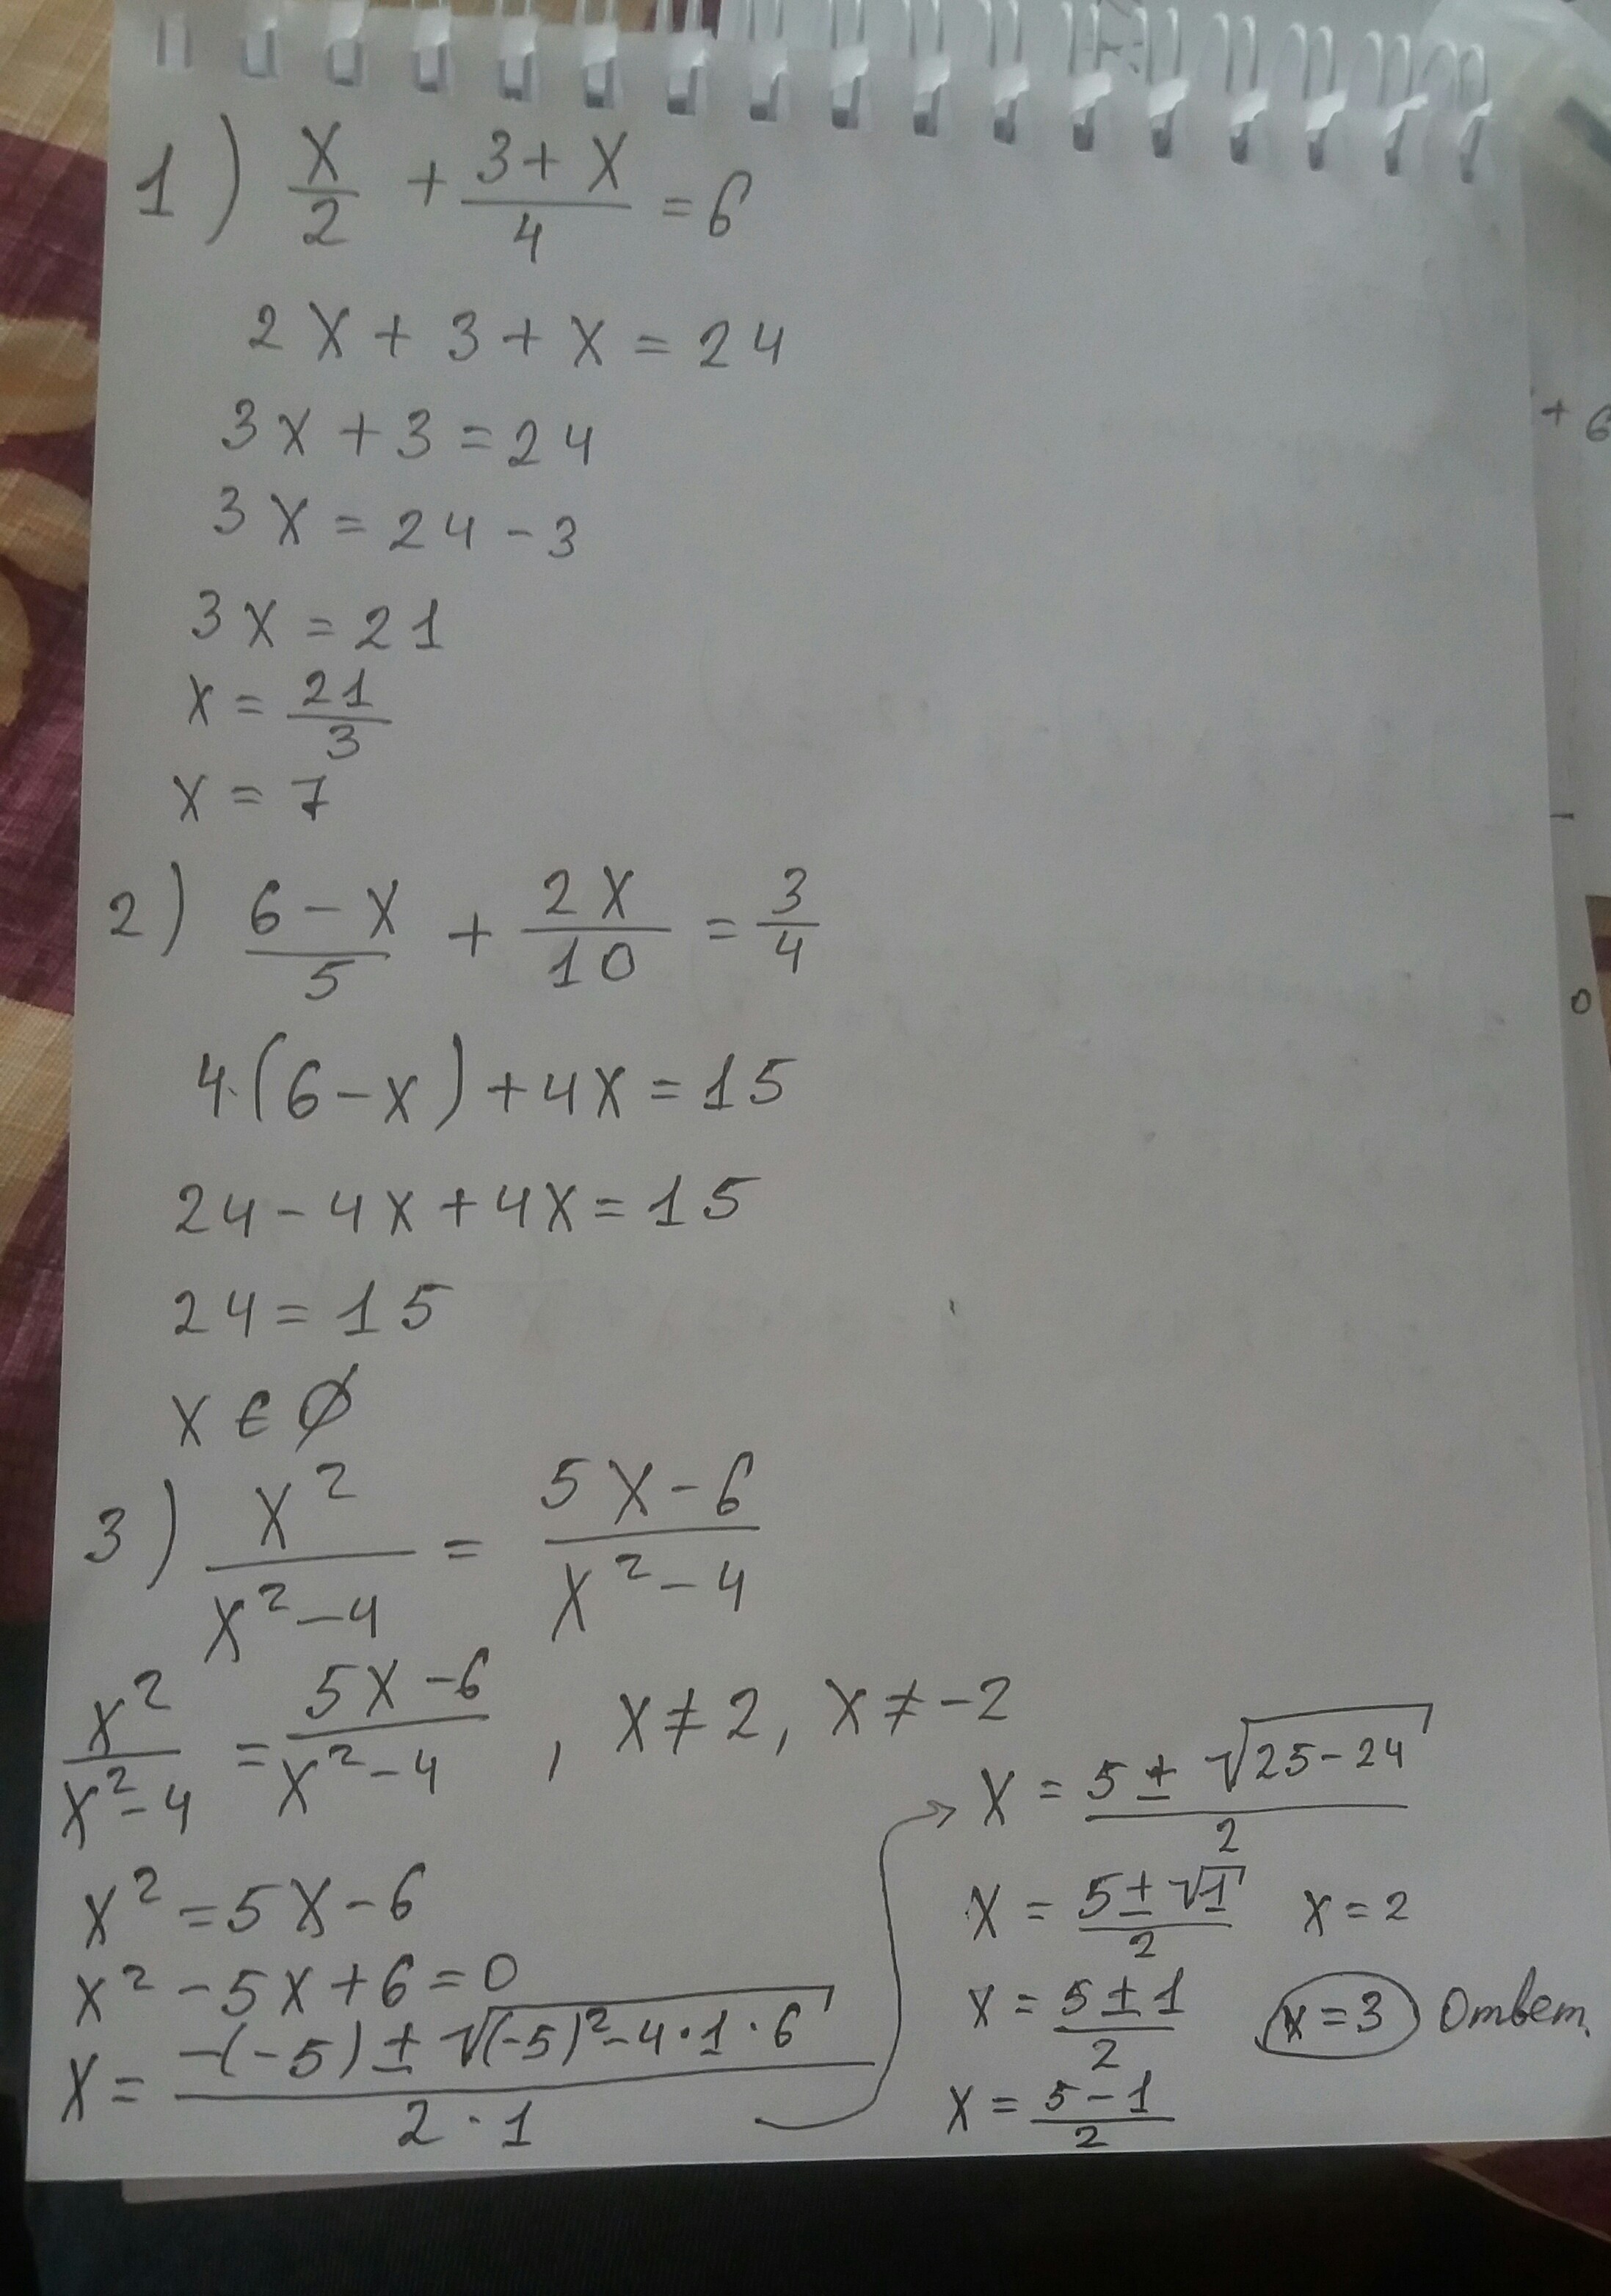 1) x/2 + (3+x)/4 = 6
2x + 3 + x = 24
3x + 3 = 24
3x = 24 - 3
3x = 21
x = 21/3
x = 7
2) (6-x)/5 + 2x/10 = 3/4
4·(6-x) + 4x = 15
24 - 4x + 4x = 15
24 = 15
x ∈ ∅
3) x²/(x²-4) = (5x-6)/(x²-4)
x²/(x²-4) = (5x-6)/(x²-4), x ≠ 2, x ≠ -2
x² = 5x - 6
x² - 5x + 6 = 0
x = (-(-5) ± √((-5)² - 4·1·6))/(2·1)
x = (5 ± √(25-24))/2
x = (5 ± √1)/2 x = 2
x = (5 ± 1)/2 x = 3 Ответ.
x = (5-1)/2
+ 6
-
0